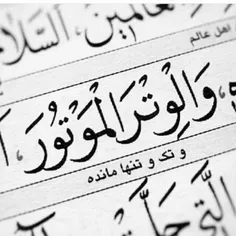 عالمين، السلا
اهل عالم
ه، وَالْوِتْرَ الْمَوْتُورَ،
و تک و تنها مانده
الَّتي حَلَّتْ